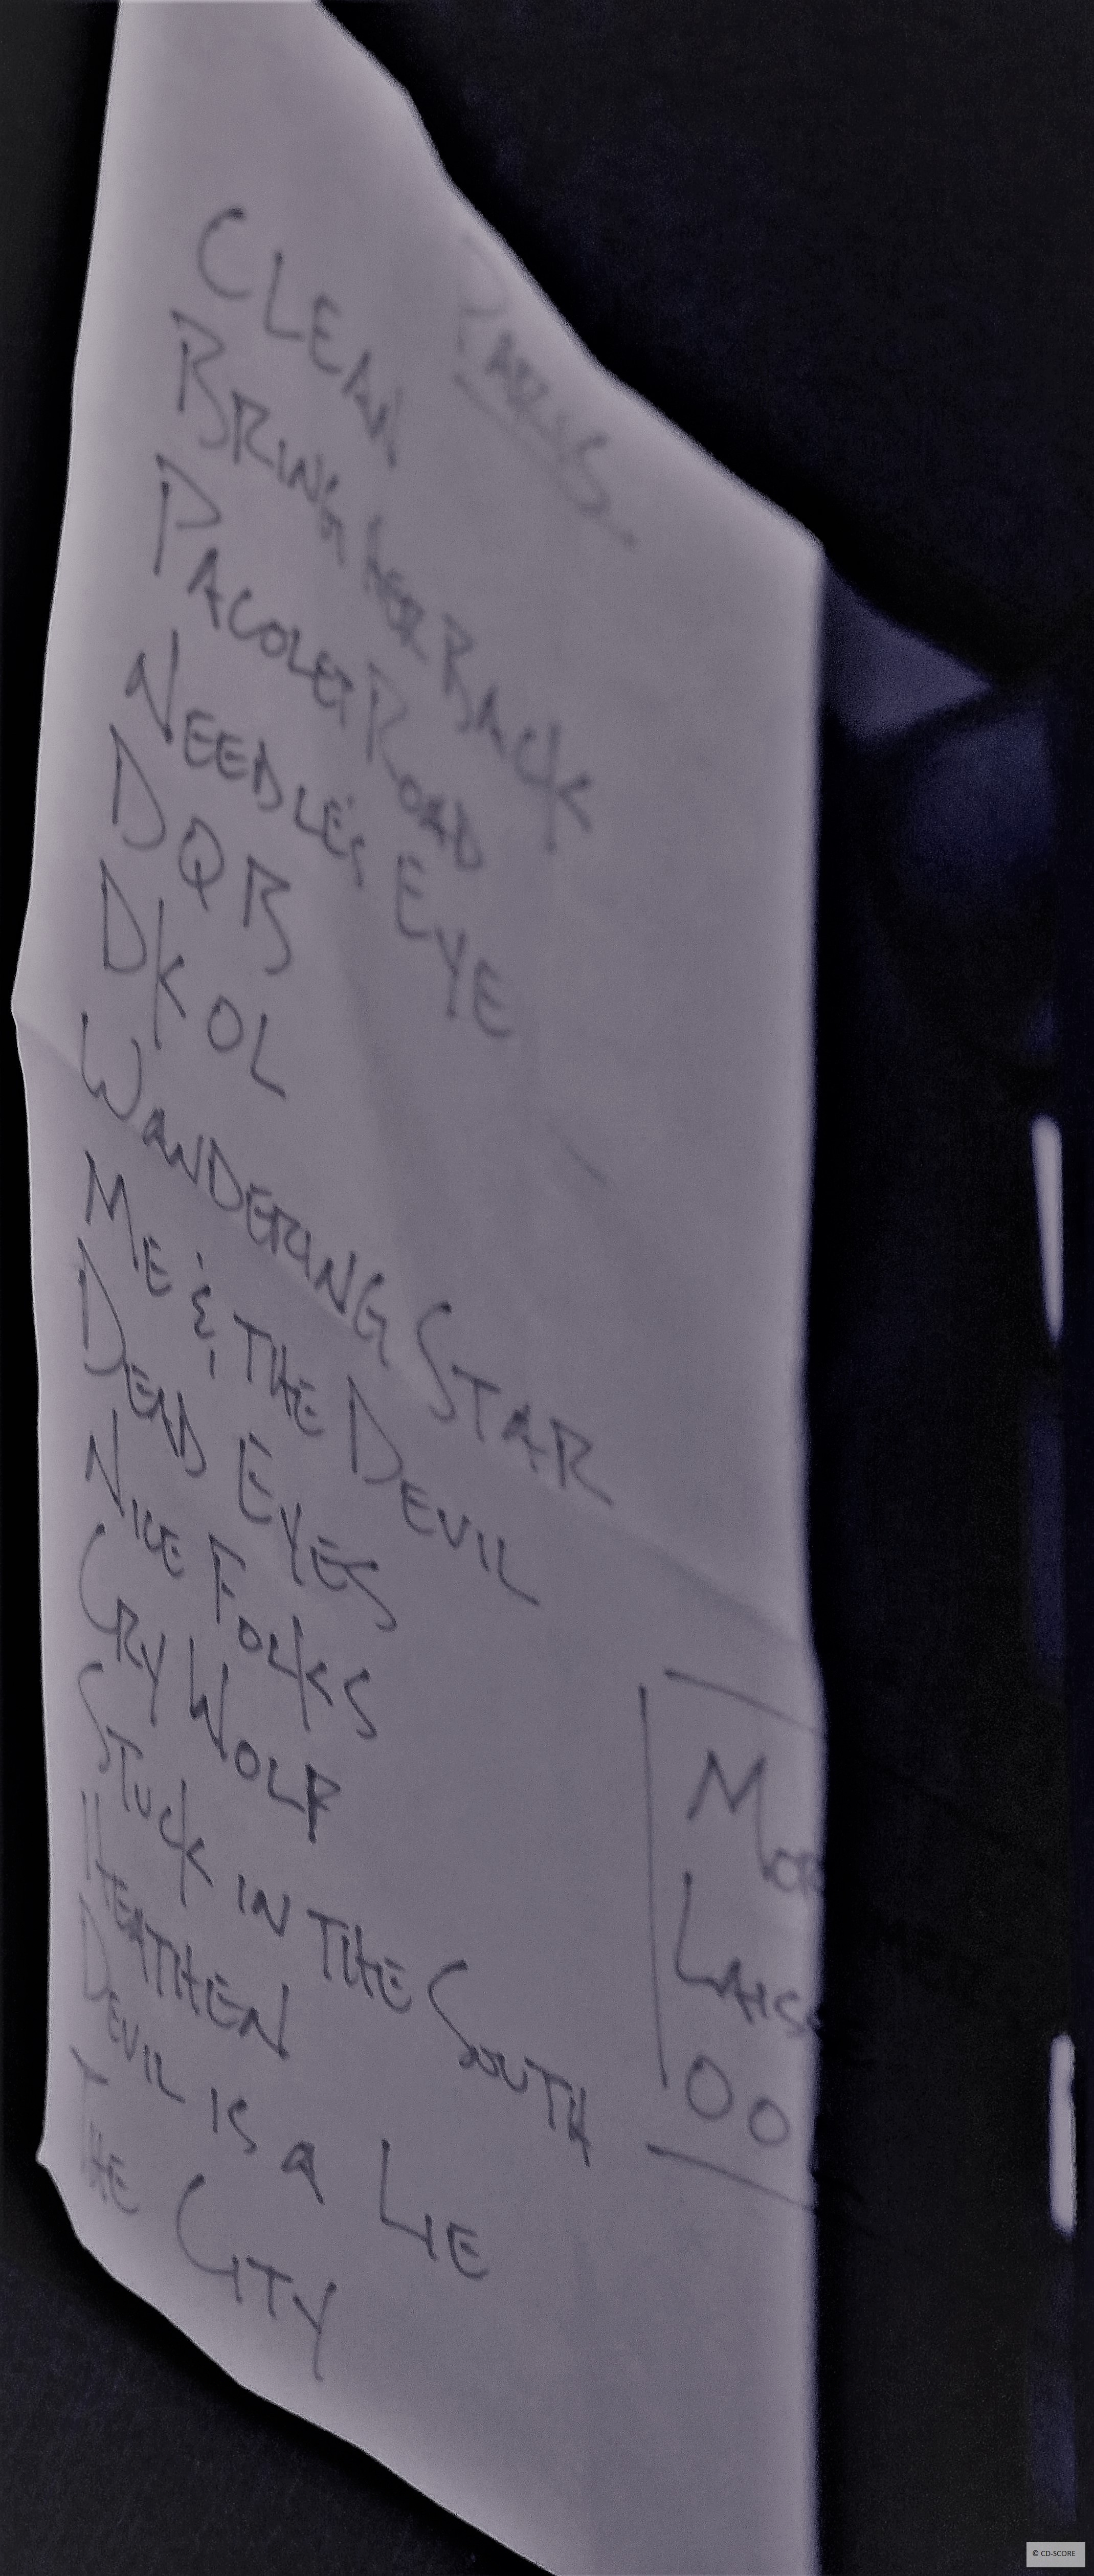 PARIS
CLEAN
BRING HER BACK
PACOLET ROAD
NEEDLE'S EYE
DQB
DKOL
WANDERING STAR
ME & THE DEVIL
DEAD EYES
NICE FOLKS
CRY WOLF
STUCK IN THE SOUTH
HEATHEN
DEVIL IS A LIE
THE CITY
OO
© CD-SCORE